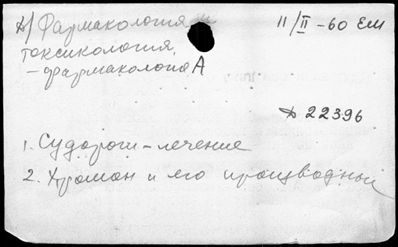 А/ Фармакология и
токсикология,
– фармакология А
11/II – 60 ЕМ
Д 22396
1. Судороги – лечение
2. Хроман и его производный